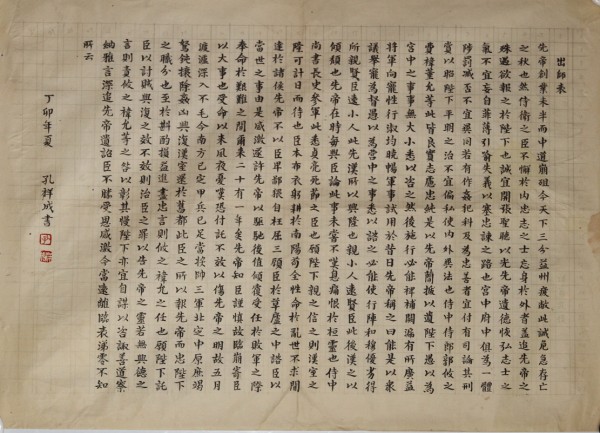 出師表
先帝創業未半而中道崩殂今天下三分益州疲敝此誠危急存亡
之秋也然侍衛之臣不懈於內忠志之士忘身於外者蓋追先帝之
殊遇欲報之於陛下也誠宜開張聖聽以光先帝遺德恢弘志士之
氣不宜妄自菲薄引喻失義以塞忠諫之路也宮中府中俱為一體
陟罰臧否不宜異同若有作姦犯科及為忠善者宜付有司論其刑
賞以昭陛下平明之治不宜偏私使內外異法也侍中侍郎郭攸之
費禕董允等此皆良實志慮忠純是以先帝簡拔以遺陛下愚以為
宮中之事事無大小悉以咨之然後施行必能裨補闕漏有所廣益
將軍向寵性行淑均曉暢軍事試用於昔日先帝稱之曰能是以眾
議舉寵為督愚以為營中之事悉以諮之必能使行陣和穆優劣得
所親賢臣遠小人此先漢所以興隆也親小人遠賢臣此後漢之以
傾頹也先帝在時每與臣論此事未嘗不嘆息痛恨於桓靈也侍中
尚書長史參軍此悉貞亮死節之臣也願陛下親之信之則漢室之
隆可計日而待也臣本布衣躬耕於南陽苟全性命於亂世不求聞
達於諸侯先帝不以臣卑鄙猥自枉屈三顧臣於草廬之中諮臣以
當世之事由是感激遂許先帝以驅馳後值傾覆受任於敗軍之際
奉命於艱難之間爾來二十有一年矣先帝知臣謹慎故臨崩寄臣
以大事也受命以來夙夜憂嘆恐付託不效以傷先帝之明故五月
渡瀘深入不毛今南方已定甲兵已足當獎帥三軍北定中原庶竭
駑鈍攘除姦凶興復漢室還於舊都此臣之所以報先帝而忠陛下
之職分也至於斟酌損益進盡忠言則攸之禕允之任也願陛下託
臣以討賊興復之效不效則治臣之罪以告先帝之靈若無興德之
言則責攸之禕允等之咎以彰其慢陛下亦宜自謀以咨諏善道察
納雅言深追先帝遺詔臣不勝受恩感激今當遠離臨表涕零不知
所云
丁卯年夏 孔祥成書